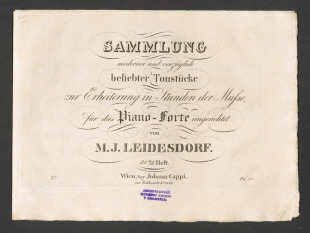 SAMMLUNG
moderner und vorzüglich
beliebter Tonstücke
zur Erheiterung in Stunden der Muße,
für das Piano-Forte eingerichtet
von
M. J. LEIDESDORF.
Heft.
Wien, bey Johann Cappi.